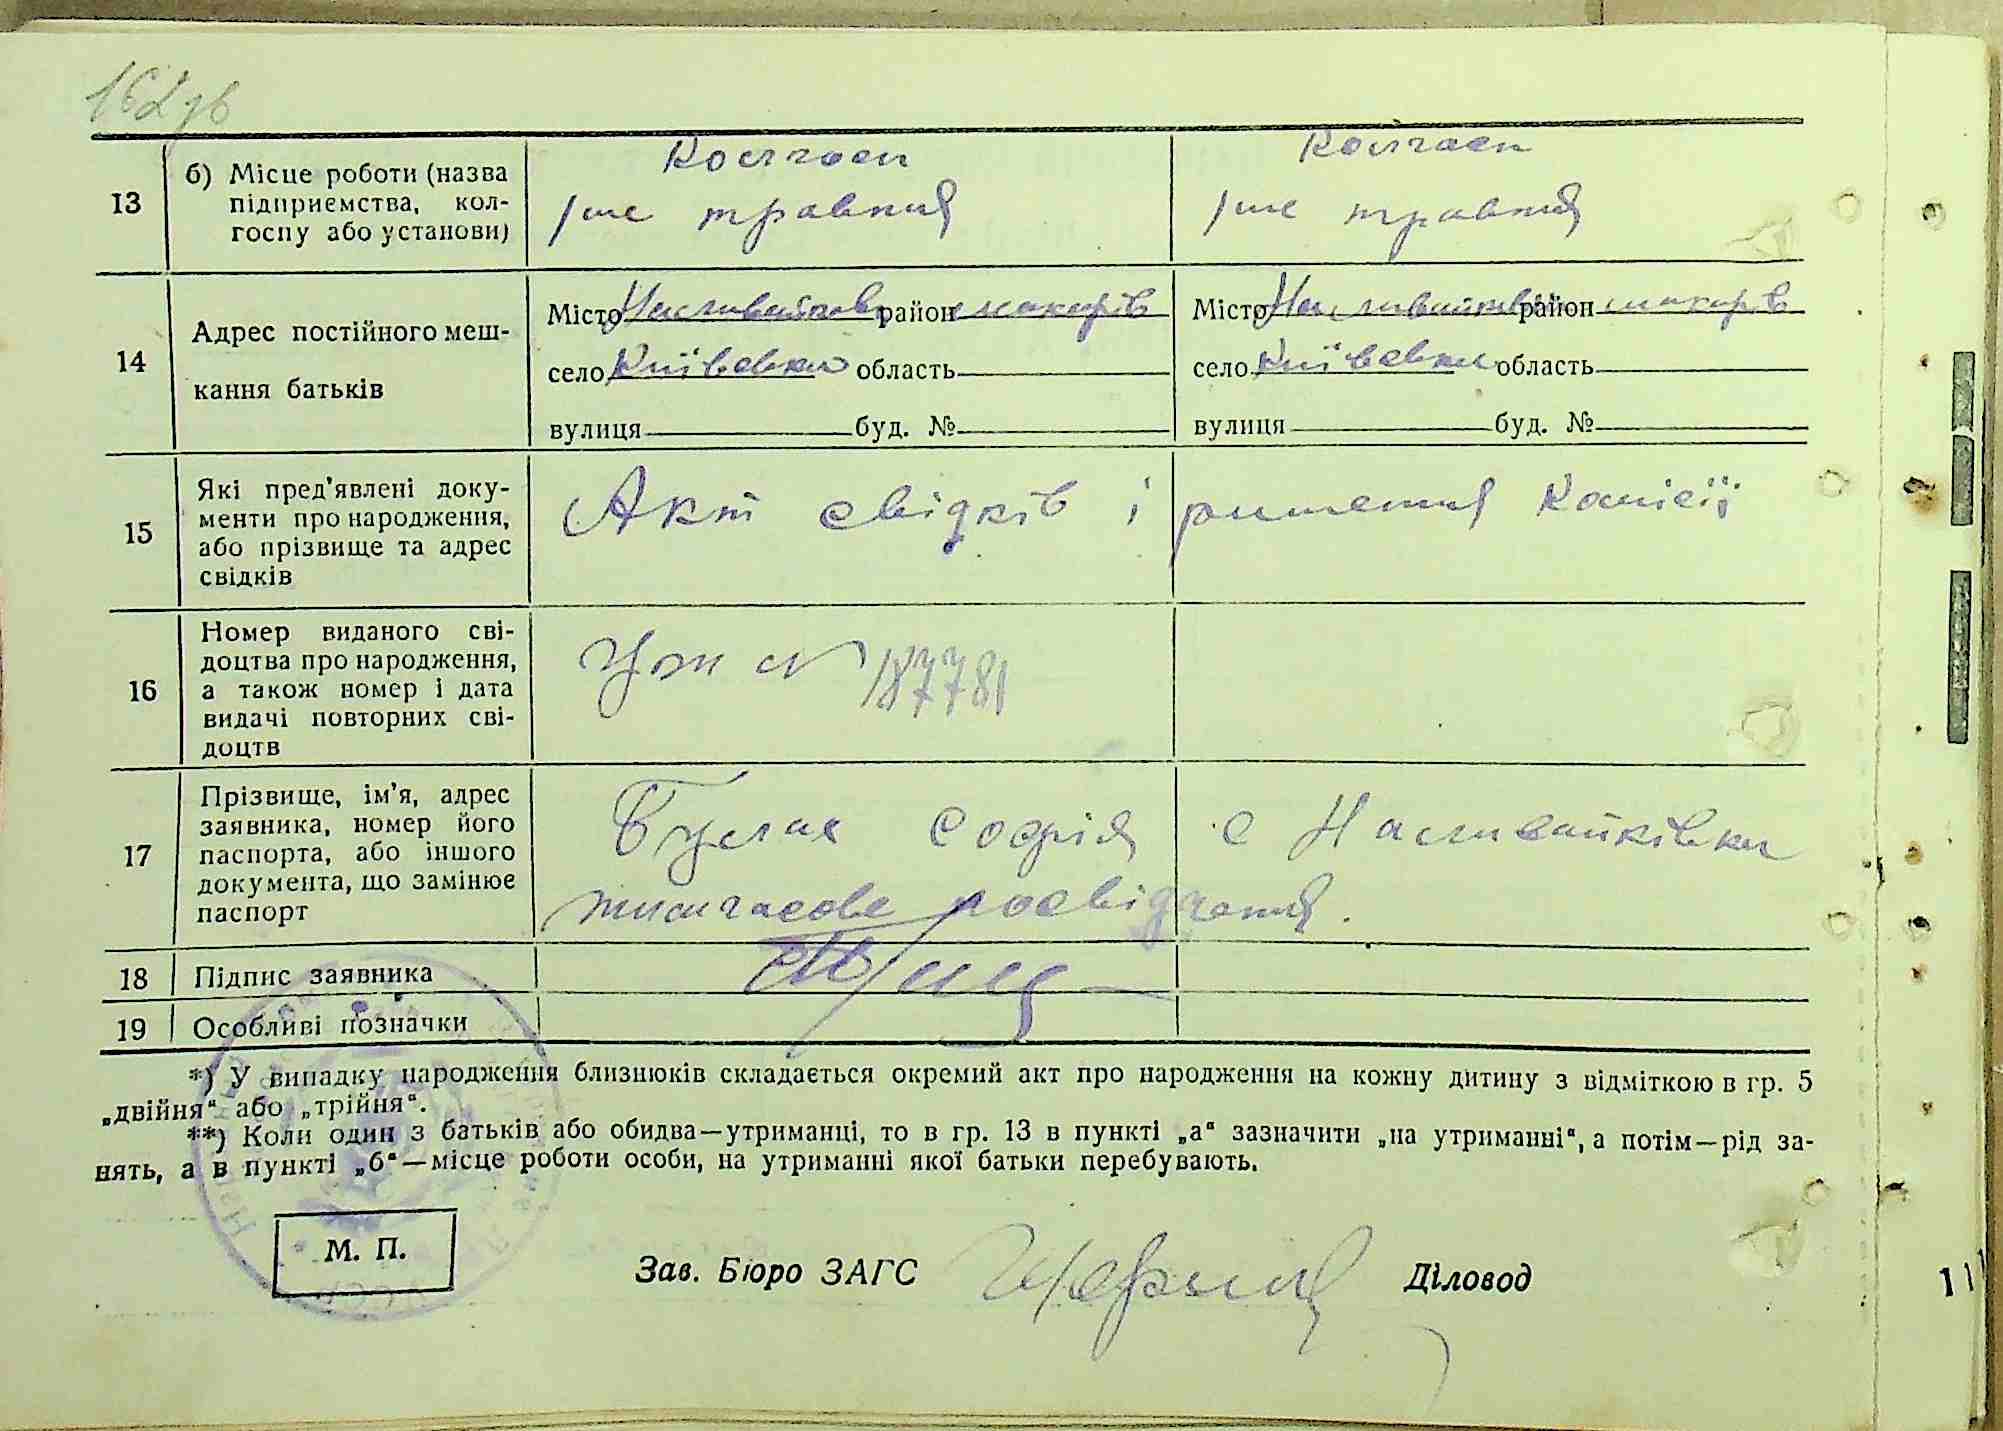 162 зв
13 б) Місце роботи (назва Колгосп Колгосп
підприємства, кол- 1ше травня 1ше травня
госпу або установи)
14 Адрес постійного меш-
кання батьків
Місто Наливайків район Макарів Місто Наливайків район Макарів
село Київська область село Київська область
вулиця буд. № вулиця буд. №
15 Які пред'явлені доку-
менти про народження,
або прізвище та адрес
свідків
Акт свідків і рішення Комісії
16 Номер виданого сві-
доцтва про народження,
а також номер і дата
видачі повторних сві-
доцтв
№ 187781
17 Прізвище, ім'я, адрес
заявника, номер його
паспорта, або іншого
документа, що замінює
паспорт
Софія с Наливайківка
тимчасове посвідчення.
18 Підпис заявника
19 Особливі позначки
*) У випадку народження близнюків складається окремий акт про народження на кожну дитину з відміткою в гр. 5
„двійня“ або „трійня“.
**) Коли один з батьків або обидва—утриманці, то в гр. 13 в пункті „а“ зазначити „на утриманні“, а потім—рід за-
нять, а в пункті „б“—місце роботи особи, на утриманні якої батьки перебувають.
М. П.
Зав. Бюро ЗАГС Діловод